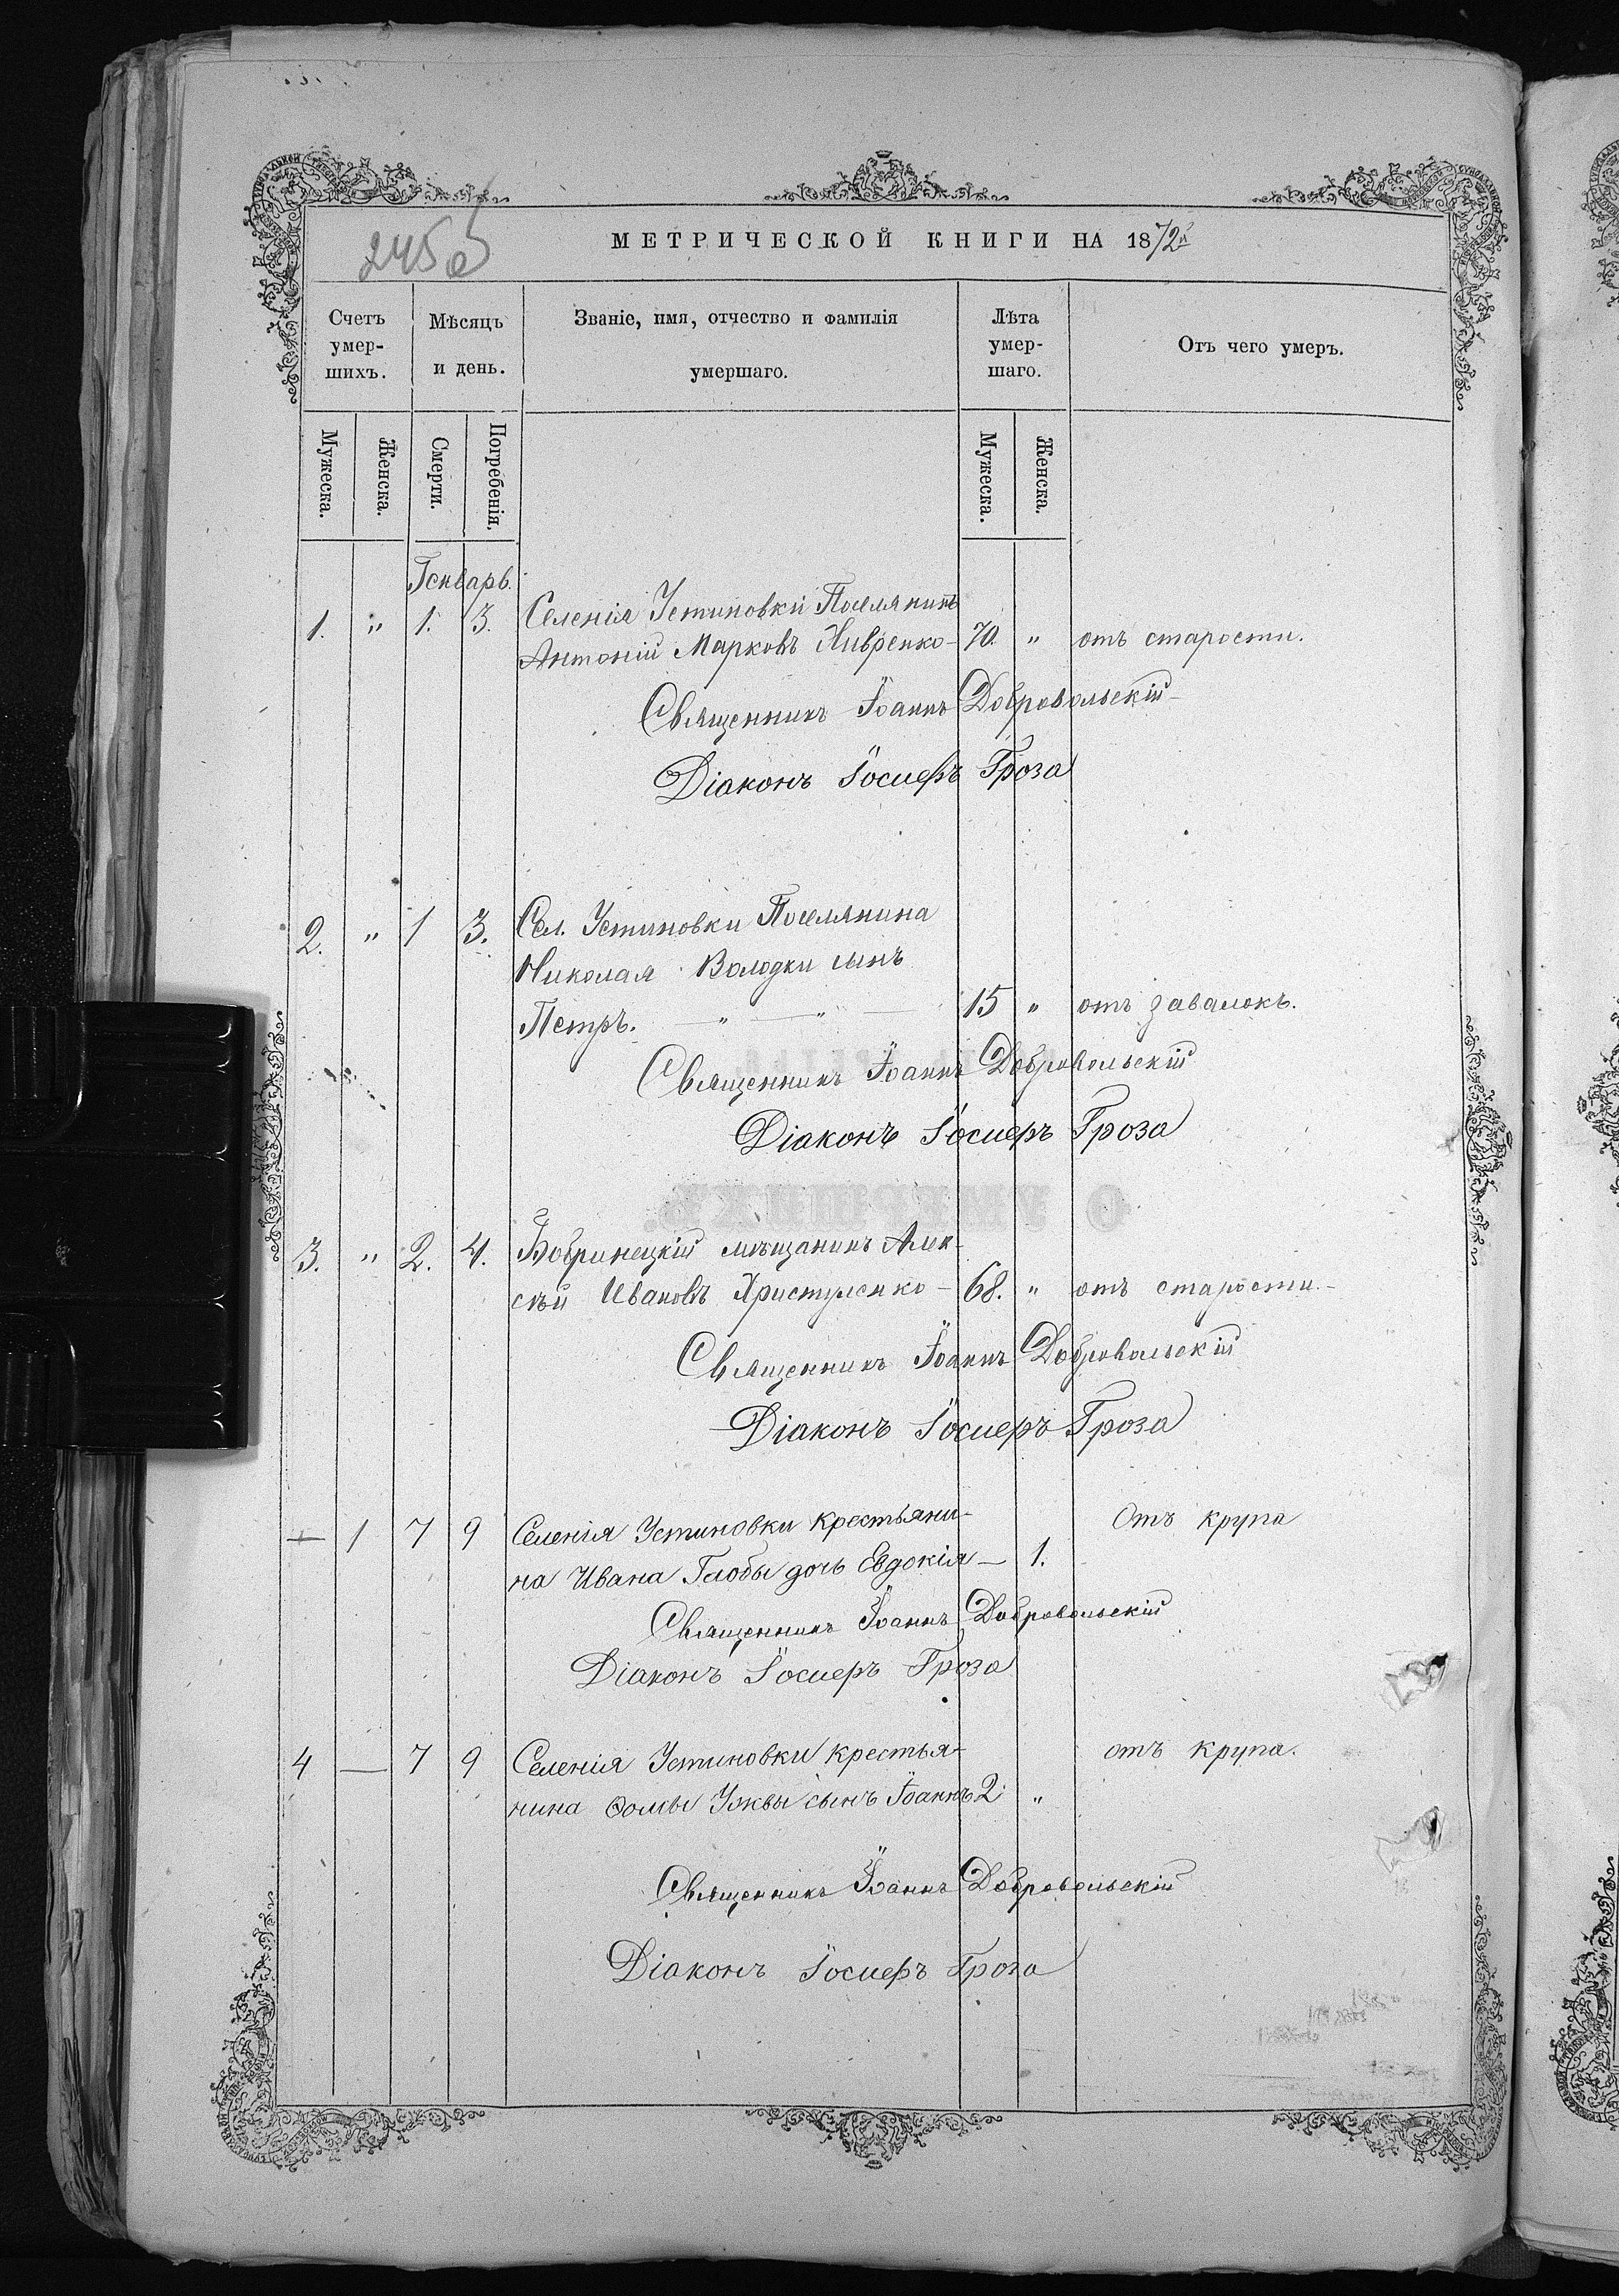 245 об
МЕТРИЧЕСКОЙ КНИГИ НА 1872й
Счетъ умер-шихъ.
Мѣсяцъ и день.
Званіе, имя, отчество и фамилія умершаго.
Лѣта умер-шаго.
Отъ чего умеръ.
Мужеска. Женска. Смерти. Погребенія. Мужеска. Женска.
Генварь.
1. " 1. 3. Селенія Устиновки Поселянинъ
Антоній Марковъ Ливренко - 70. " отъ старости.
Священникъ Іоаннъ Добровольскій
Діаконъ Іосифъ Гроза
2. " 1 3. Сел. Устиновки Поселянина
Николая Володки сынъ
Петръ. — " — " — 15 " отъ завалокъ.
Священникъ Іоаннъ Добровольскій
Діаконъ Іосифъ Гроза
3. " 2. 4. Бобринецкій мѣщанинъ Алек-
сѣй Ивановъ Христуленко - 68. " отъ старости. -
Священникъ Іоаннъ Добровольскій
Діаконъ Іосифъ Гроза
— 1 7 9 Селенія Устиновки крестьяни- Отъ крупа
на Ивана Глобы дочь Евдокія — 1.
Священникъ Іоаннъ Добровольскій
Діаконъ Іосифъ Гроза
4 — 7 9 Селенія Устиновки крестья- отъ крупа.
нина Ѳомы Ужвы сынъ Іоаннъ 2. "
Священникъ Іоаннъ Добровольскій
Діаконъ Іосифъ Гроза